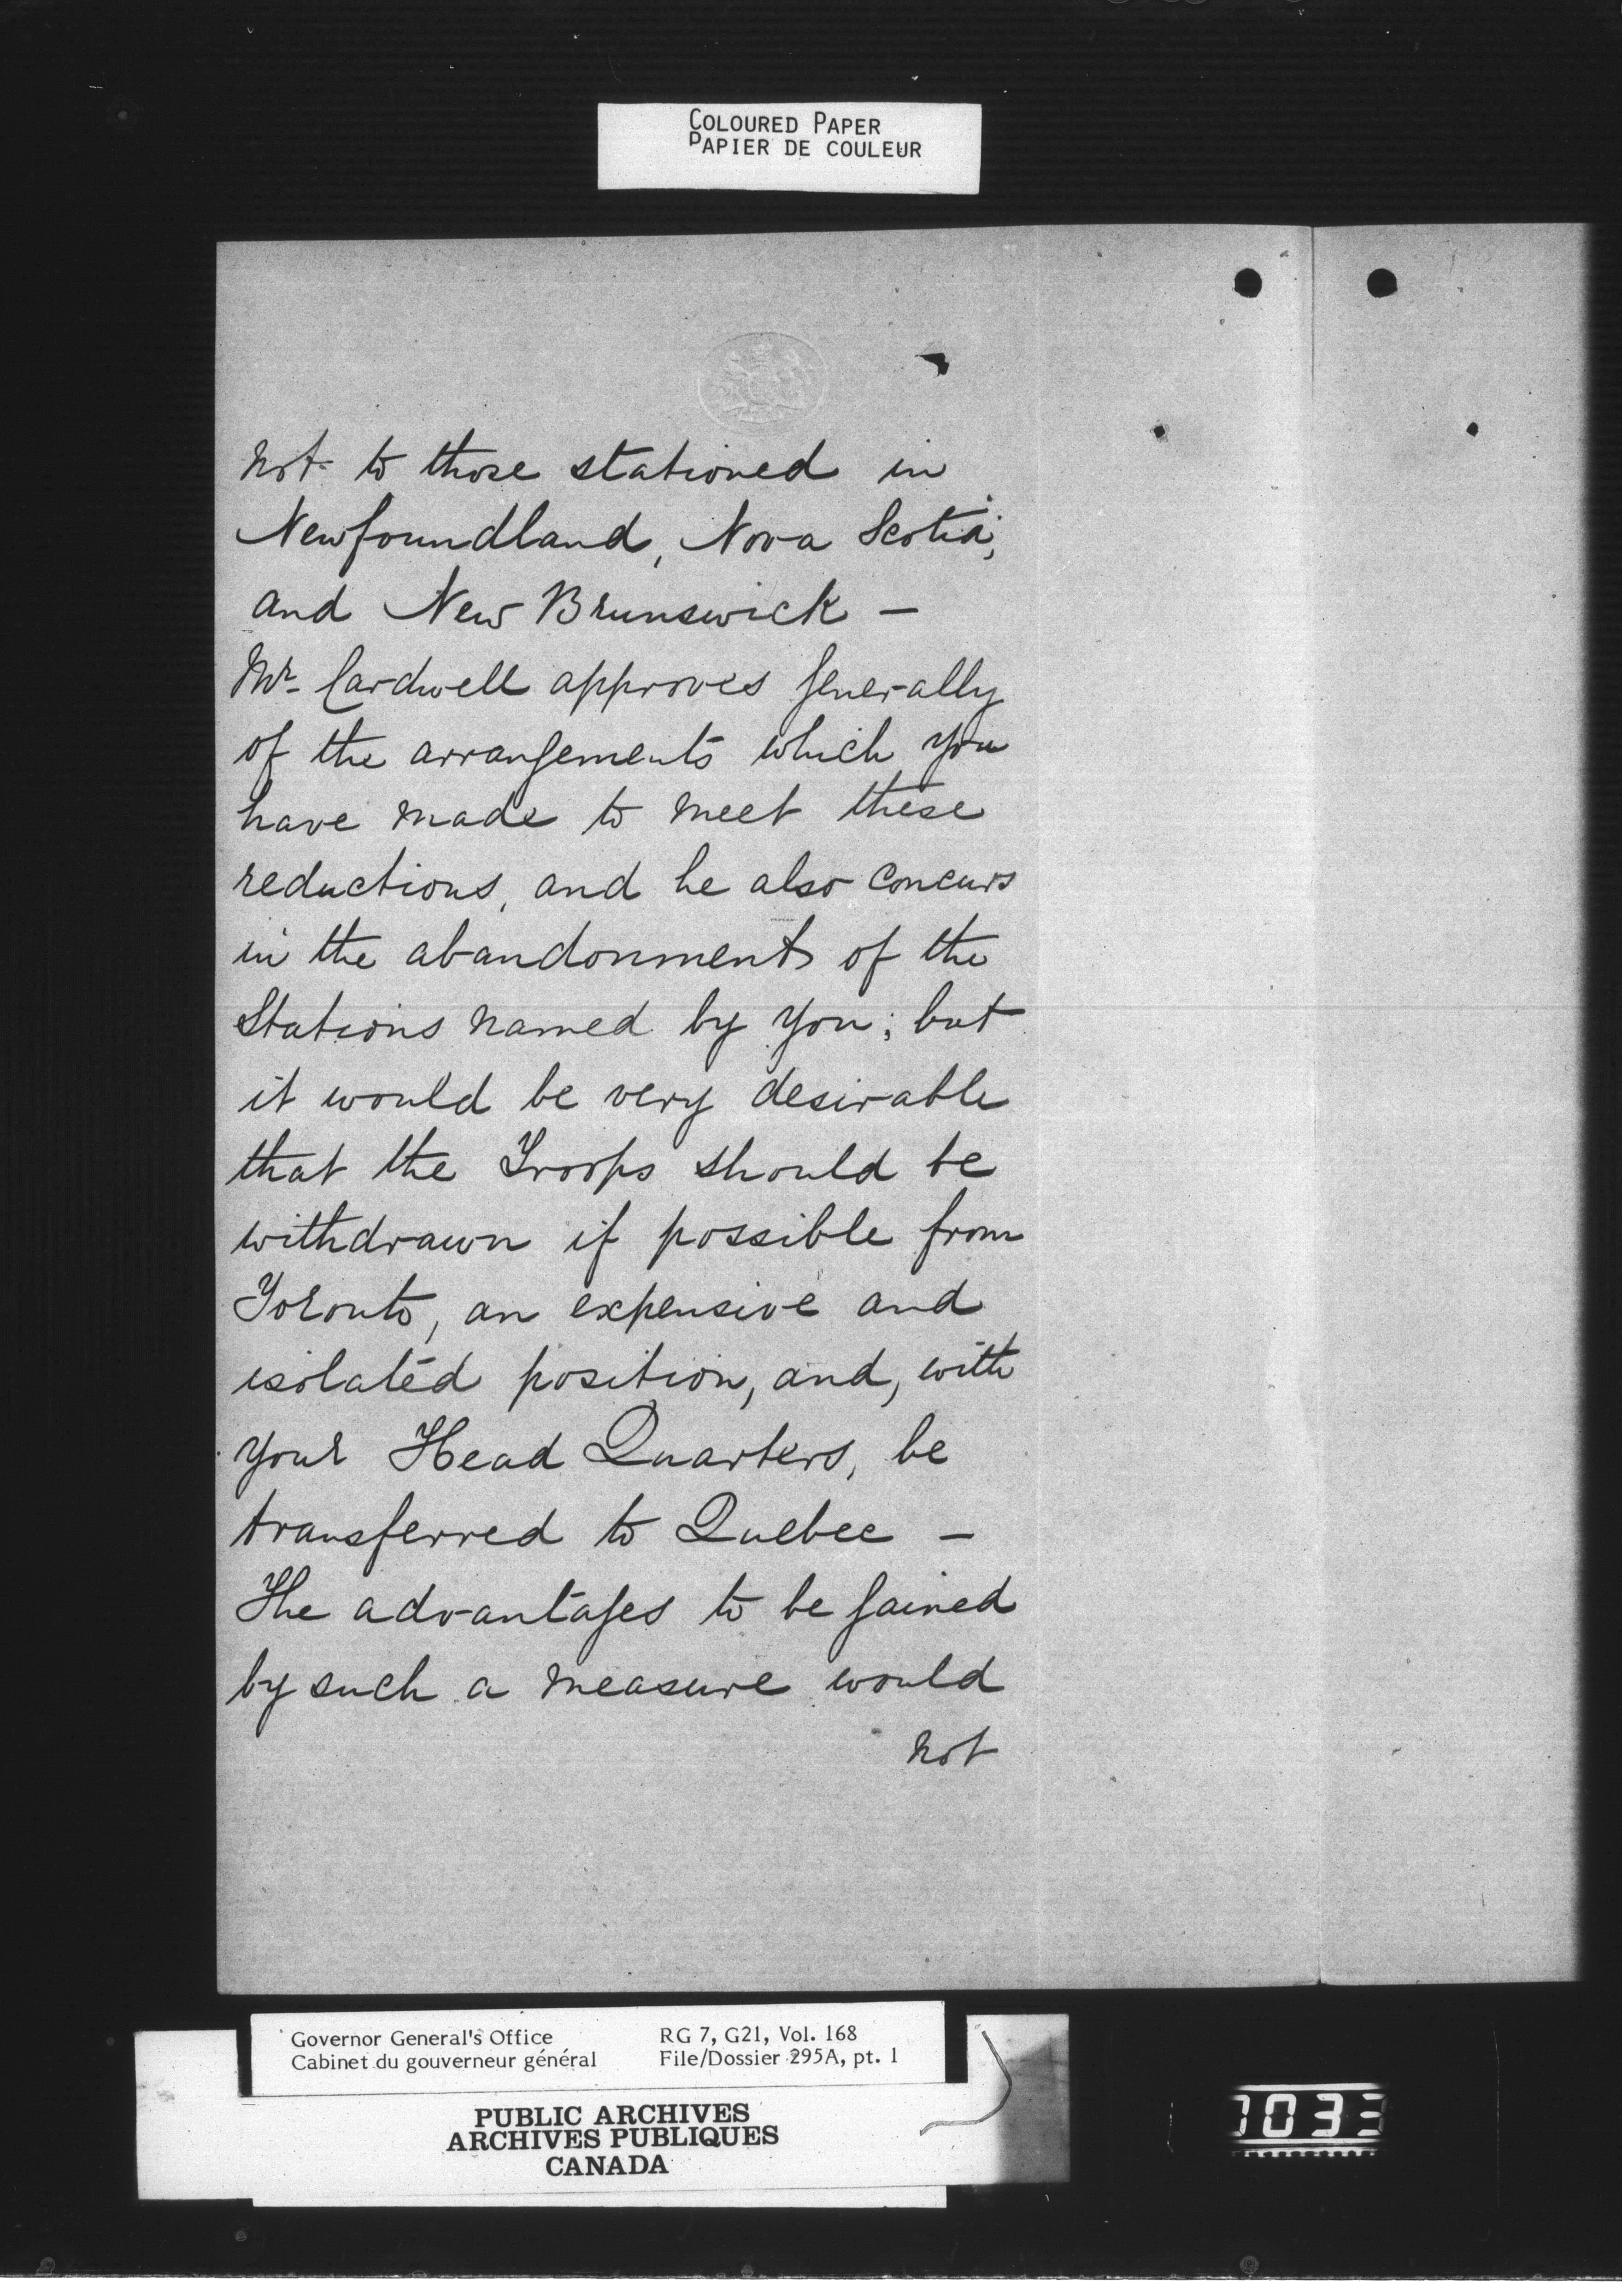 COLOURED PAPER
PAPIER DE COULEUR
not to those stationed in
Newfoundland, Nova Scotia,
and New Brunswick —
Mr. Cardwell approves generally
of the arrangements which you
have made to meet these
reductions, and he also concurs
in the abandonment of the
Stations named by you; but
it would be very desirable
that the Troops should be
withdrawn if possible from
Toronto, an expensive and
isolated position, and, with
your Head Quarters, be
transferred to Quebec —
The advantages to be gained
by such a measure would
not
Governor General's Office RG 7, G21, Vol. 168
Cabinet du gouverneur général File/Dossier 295A, pt. 1
PUBLIC ARCHIVES
ARCHIVES PUBLIQUES
CANADA